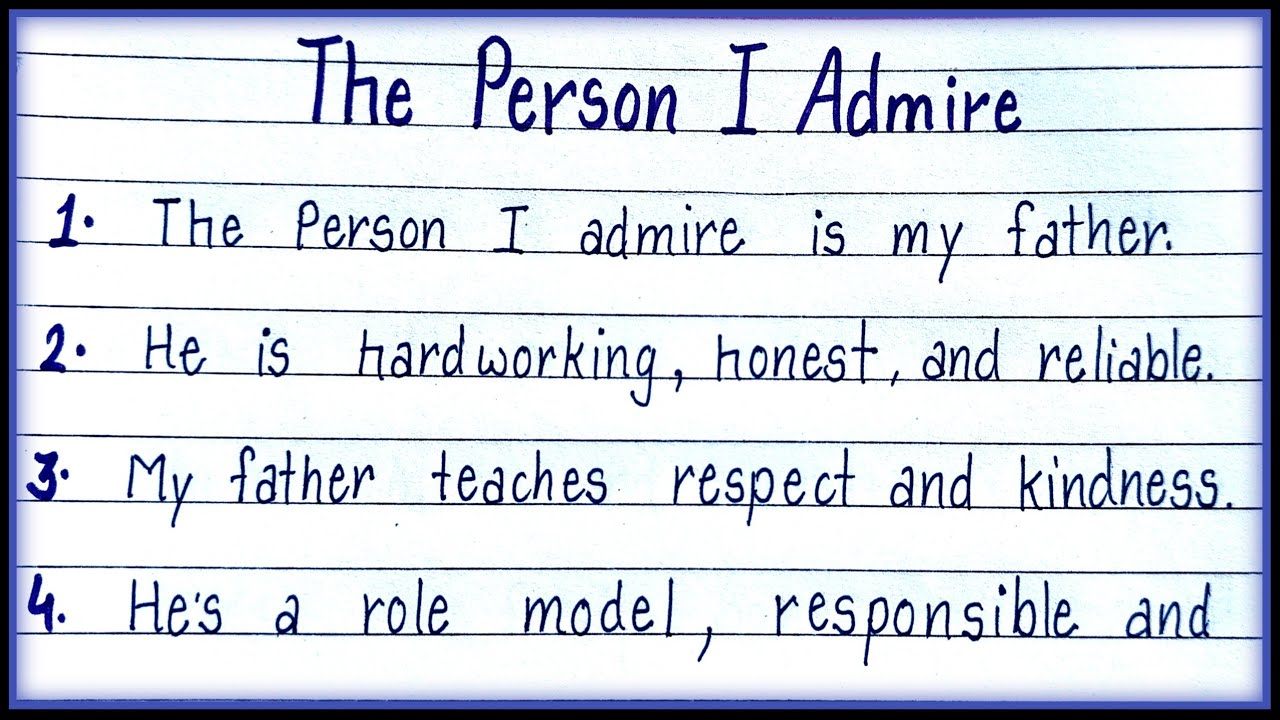 The Person I Admire
1. The Person I admire is my father.
2. He is hardworking, honest, and reliable.
3. My father teaches respect and kindness.
4. He's a role model, responsible and